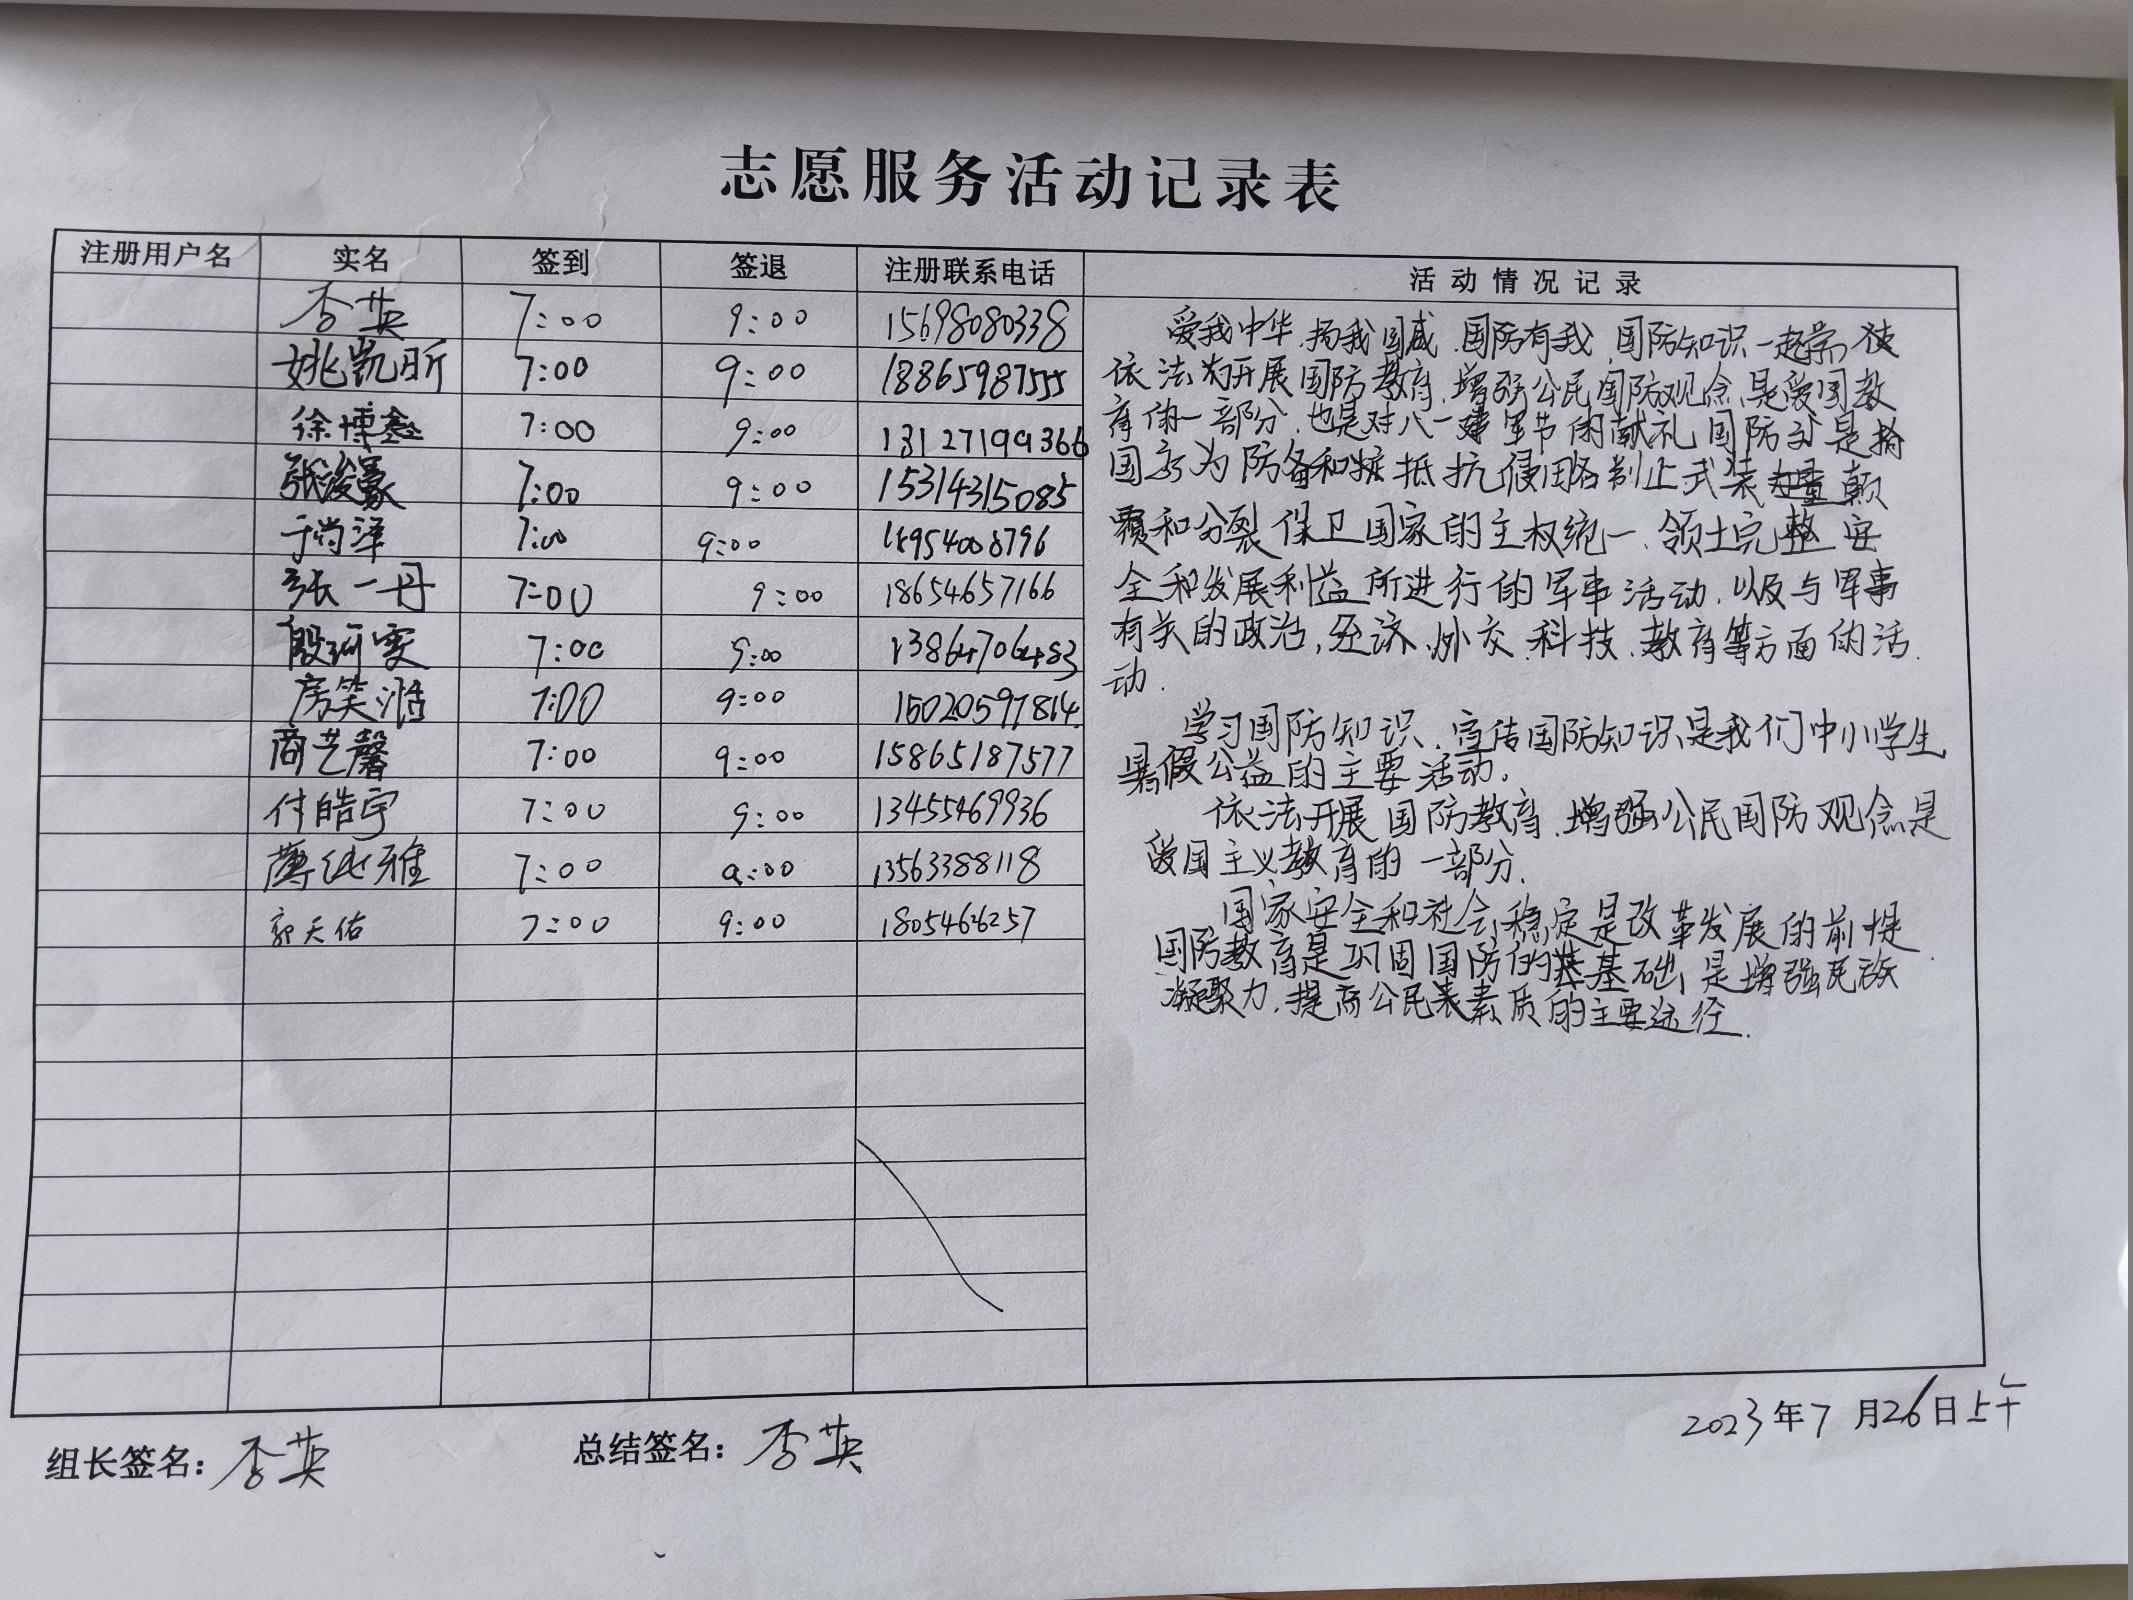 志愿服务活动记录表
注册用户名 实名 签到 签退 注册联系电话 活动情况记录
李英 7:00 9:00 15698080338
姚凯昕 7:00 9:00 18865987555
徐博鑫 7:00 9:00 13127199366
张浚豪 7:00 9:00 15314315085
于尚泽 7:00 9:00 18954008796
张一丹 7:00 9:00 18654657166
殷珂雯 7:00 9:00 13864706483
房笑 7:00 9:00 15020597814
商艺馨 7:00 9:00 15865187577
付皓宇 7:00 9:00 13455469936
7:00 9:00 13563388118
郭天佑 7:00 9:00 1805466257
爱我中华,扬我国威,国防有我,国防知识一起学
依法开展国防教育,增强公民国防观念,是爱国教
育的一部分,也是对八一建军节的献礼 国防 是指
国家为防备和 抵抗侵略 制止武装 颠
覆和分裂 保卫国家的主权统一、领土完整 安
全和发展利益所进行的军事活动,以及与军事
有关的政治,经济、外交、科技、教育等方面的活
动.
学习国防知识,宣传国防知识是我们中小学生
暑假公益的主要活动.
依法开展国防教育,增强公民国防观念是
爱国主义教育的一部分.
国家安全和社会稳定是改革发展的前提.
国防教育是巩固国防的基础,是增强民族
凝聚力,提高公民素质的主要途径.
组长签名:李英 总结签名:李英 2023年7月26日上午